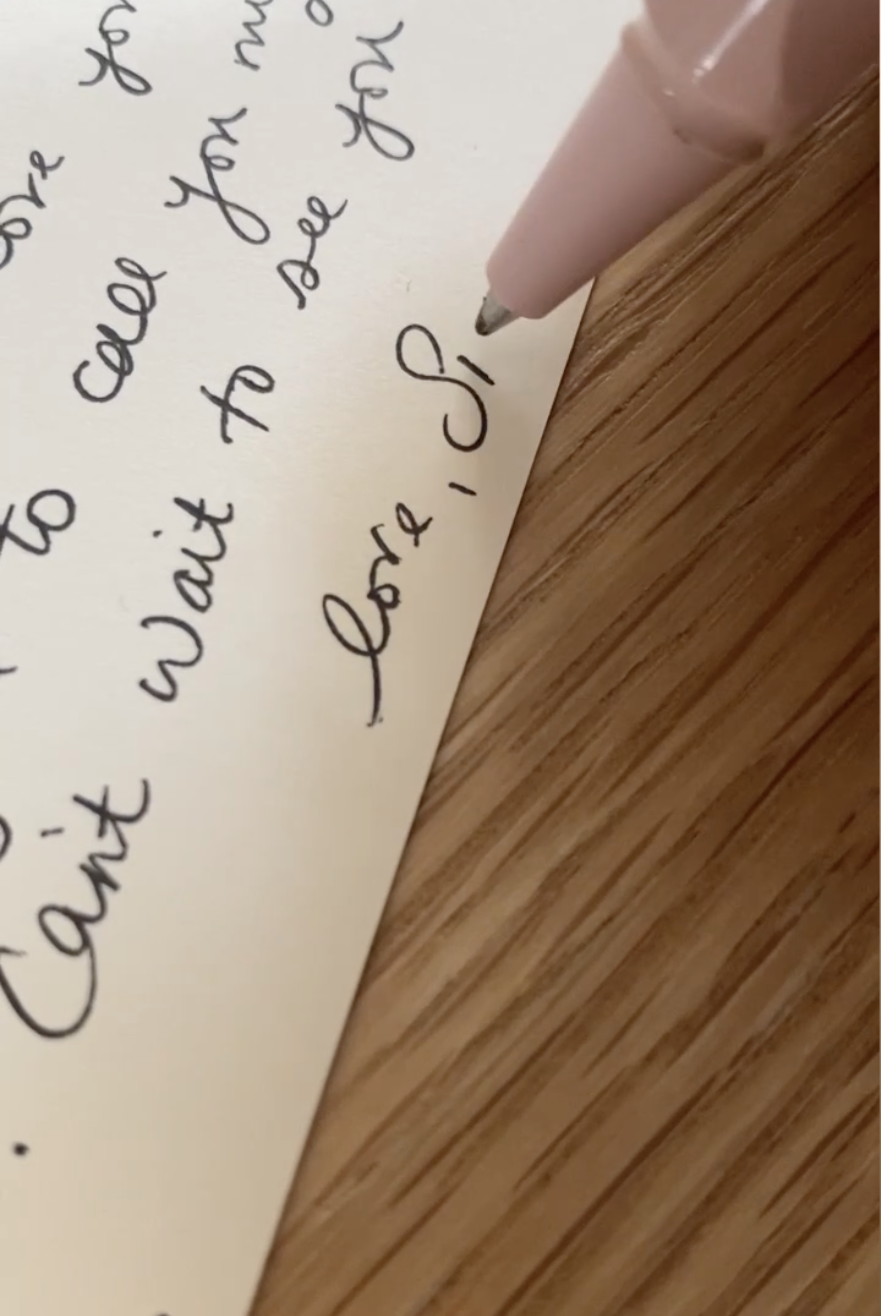 love you
to call you my
Can't wait to see you
love, S